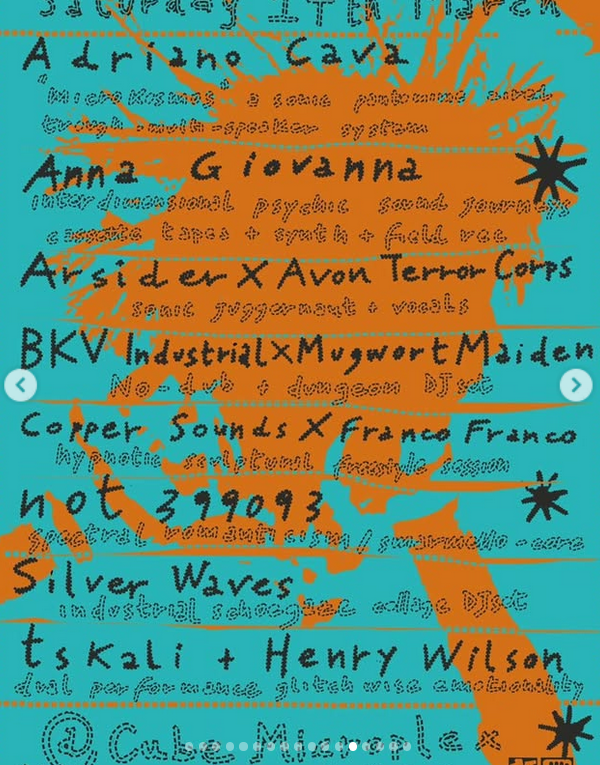 Saturday 14th March
Adriano Cava
"Microkosmos" a sonic pantomime aired
trough -multi-speaker system
Anna Giovanna
interdimensional psychic sound journeys
cassette tapes + synth + field rec
Arsider X Avon Terror Corps
sonic juggernaut + vocals
BKV Industrial X Mugwort Maiden
No-dub + dungeon DJset
Copper Sounds X Franco Franco
hypnotic sculptural freestyle session
not 399093
spectral romanticism /
Silver Waves
industrial schoegaze collage DJset
ts Kali + Henry Wilson
dual performance glitch wise emotionality
@Cube Microplex